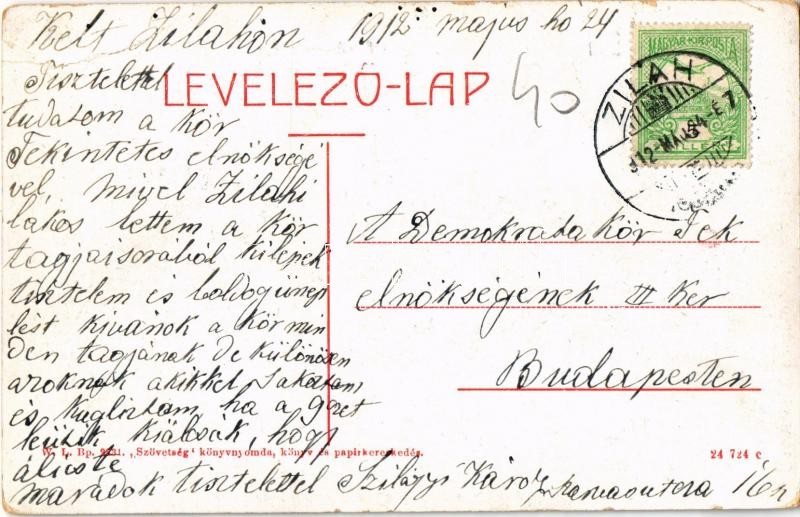 Kelt Zilahon 1912 május hó 24
LEVELEZŐ-LAP
40
MAGYAR KIR. POSTA
ZILAH
912 MÁJ. 24
Tisztelettel
tudatom a Kör
Tekintetes elnöksége
vel, mivel Zilahi
lakos lettem a Kör
tagjaisorából kilépek
tisztelem és boldogünnep
lést kivánok a Kör min
den tagjának de különösen
azoknak akikkel sakoztam,
és kugliztam, ha a
hogy
maradok tisztelettel Szilágyi Károly
A Demokrata Kör Tek
elnökségének III Ker
Budapesten
W. L. Bp. „Szövetség" könyvnyomda, könyv és papirkereskedés.
24 724 c